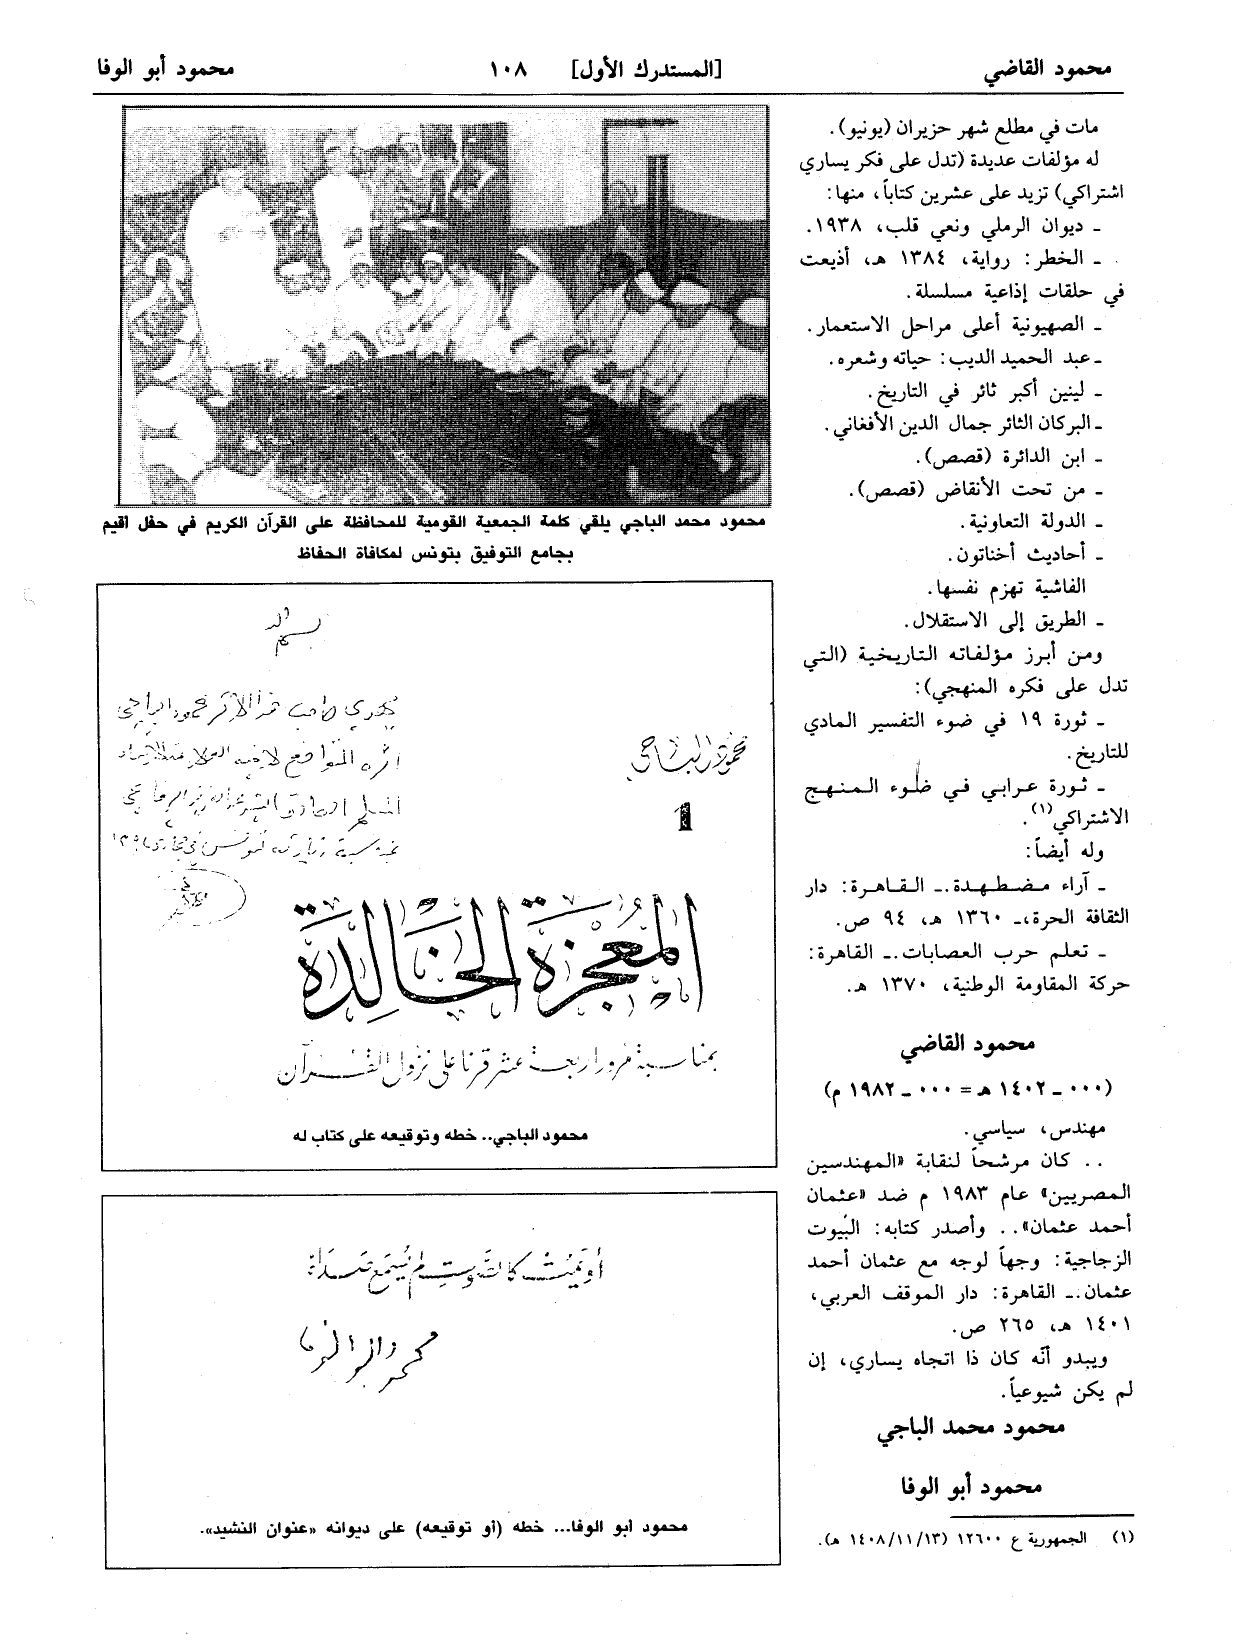 محمود القاضي [المستدرك الأول] ١٠٨ محمود أبو الوفا
مات في مطلع شهر حزيران (يونيو).
له مؤلفات عديدة (تدل على فكر يساري
اشتراكي) تزيد على عشرين كتاباً، منها:
ـ ديوان الرملي ونعي قلب، ١٩٣٨.
ـ الخطر: رواية، ١٣٨٤ هـ، أذيعت
في حلقات إذاعية مسلسلة.
ـ الصهيونية أعلى مراحل الاستعمار.
ـ عبد الحميد الديب: حياته وشعره.
ـ لينين أكبر ثائر في التاريخ.
ـ البركان الثائر جمال الدين الأفغاني.
ـ ابن الدائرة (قصص).
ـ من تحت الأنقاض (قصص).
ـ الدولة التعاونية.
ـ أحاديث أخناتون.
الفاشية تهزم نفسها.
ـ الطريق إلى الاستقلال.
ومن أبرز مؤلفاته التاريخية (التي
تدل على فكره المنهجي):
ـ ثورة ١٩ في ضوء التفسير المادي
للتاريخ.
ـ ثورة عرابي في ضوء المنهج
الاشتراكي(١).
وله أيضاً:
ـ آراء مضطهدة.ـ القاهرة: دار
الثقافة الحرة،ـ ١٣٦٠ هـ، ٩٤ ص.
ـ تعلم حرب العصابات.ـ القاهرة:
حركة المقاومة الوطنية، ١٣٧٠ هـ.
محمود القاضي
(٠٠٠ ـ ١٤٠٢ هـ = ٠٠٠ ـ ١٩٨٢ م)
مهندس، سياسي.
.. كان مرشحاً لنقابة «المهندسين
المصريين» عام ١٩٨٣ م ضد «عثمان
أحمد عثمان».. وأصدر كتابه: البيوت
الزجاجية: وجهاً لوجه مع عثمان أحمد
عثمان.ـ القاهرة: دار الموقف العربي،
١٤٠١ هـ، ٢٦٥ ص.
ويبدو أنّه كان ذا اتجاه يساري، إن
لم يكن شيوعياً.
محمود محمد الباجي
محمود أبو الوفا
(١) الجمهورية ع ١٢٦٠٠ (١٤٠٨/١١/١٣ هـ).
محمود محمد الباجي يلقي كلمة الجمعية القومية للمحافظة على القرآن الكريم في حفل أقيم
بجامع التوفيق بتونس لمكافأة الحفاظ
يهدي صاحب هذا الأثر محمود الباجي
أثره المتواضع لأخيه
المسلم الصادق الشيخ عبد العزيز الرفاعي
بمناسبة زيارته لتونس في
محمود الباجي
1
المعجزة الخالدة
بمناسبة مرور أربعة عشر قرنا على نزول القرآن
محمود الباجي.. خطه وتوقيعه على كتاب له
أو يَمُتْ كالصَّوتِ لم يُسْمَع صَدَاهْ
محمود أبو الوفا
محمود أبو الوفا... خطه (أو توقيعه) على ديوانه «عنوان النشيد».